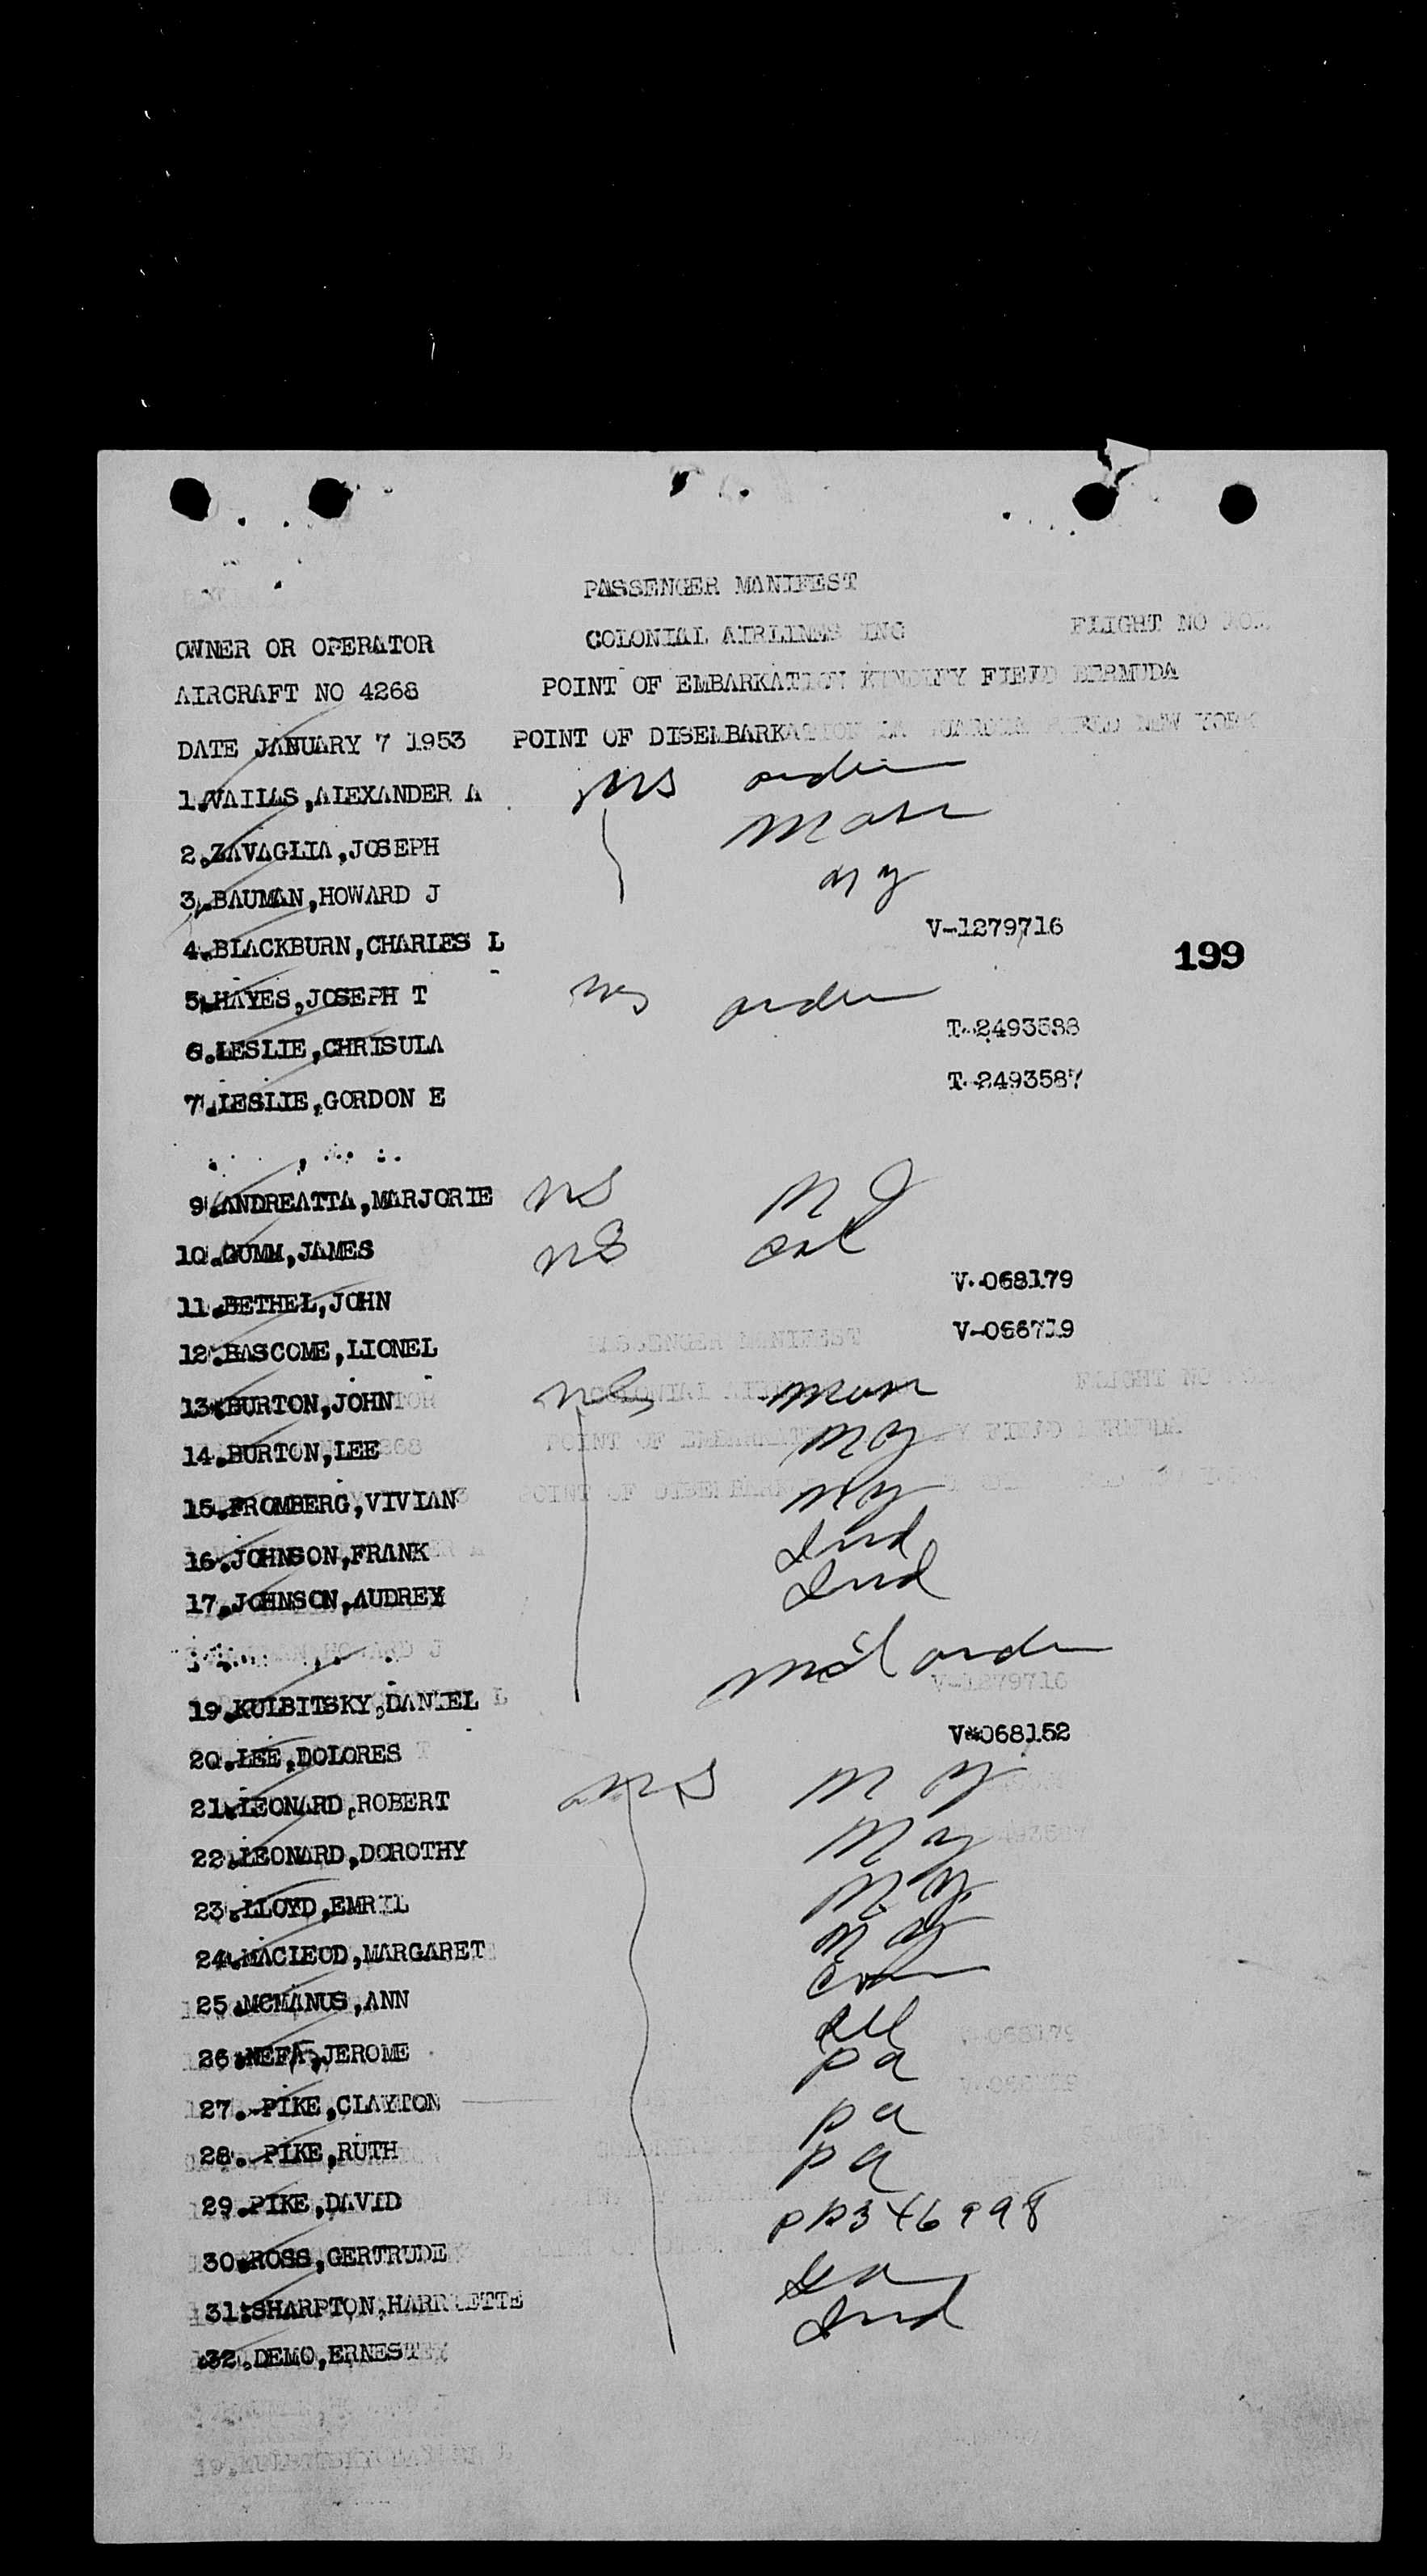 PASSENGER MANIFEST
OWNER OR OPERATOR COLONIAL AIRLINES INC FLIGHT NO
AIRCRAFT NO 4268 POINT OF EMBARKATION KINDLEY FIELD BERMUDA
DATE JANUARY 7 1953 POINT OF DISEMBARKATION LA GUARDIA FIELD NEW YORK
1. VAILAS,ALEXANDER A orders
2. ZAVAGLIA,JOSEPH Mass
3. BAUMAN,HOWARD J NY
4. BLACKBURN,CHARLES L V-1279716
199
5. HAYES,JOSEPH T orders
6. LESLIE,CHRISULA T-2493588
7. LESLIE,GORDON E T-2493587
9. ANDREATTA,MARJORIE NS NJ
10. GUMM,JAMES NS Cal
11. BETHEL,JOHN V-068179
12. BASCOME,LIONEL V-066719
13. BURTON,JOHN
14. BURTON,LEE NY
15. FROMBERG,VIVIAN NY
16. JOHNSON,FRANK Ind
17. JOHNSON,AUDREY Ind
19. KULBITSKY,DANIEL Mil orders
20. LEE,DOLORES V*068152
21. LEONARD,ROBERT NS NY
22. LEONARD,DOROTHY NY
23. LLOYD,EMRIL NY
24. MACLEOD,MARGARET NY
25. MCMANUS,ANN
26. NEFF,JEROME Ill
27. PIKE,CLAYTON Pa
28. PIKE,RUTH Pa
29. PIKE,DAVID Pa
30. ROSS,GERTRUDE PP346998
31. SHARPTON,HARRIETTE
32. DEMO,ERNEST Ind